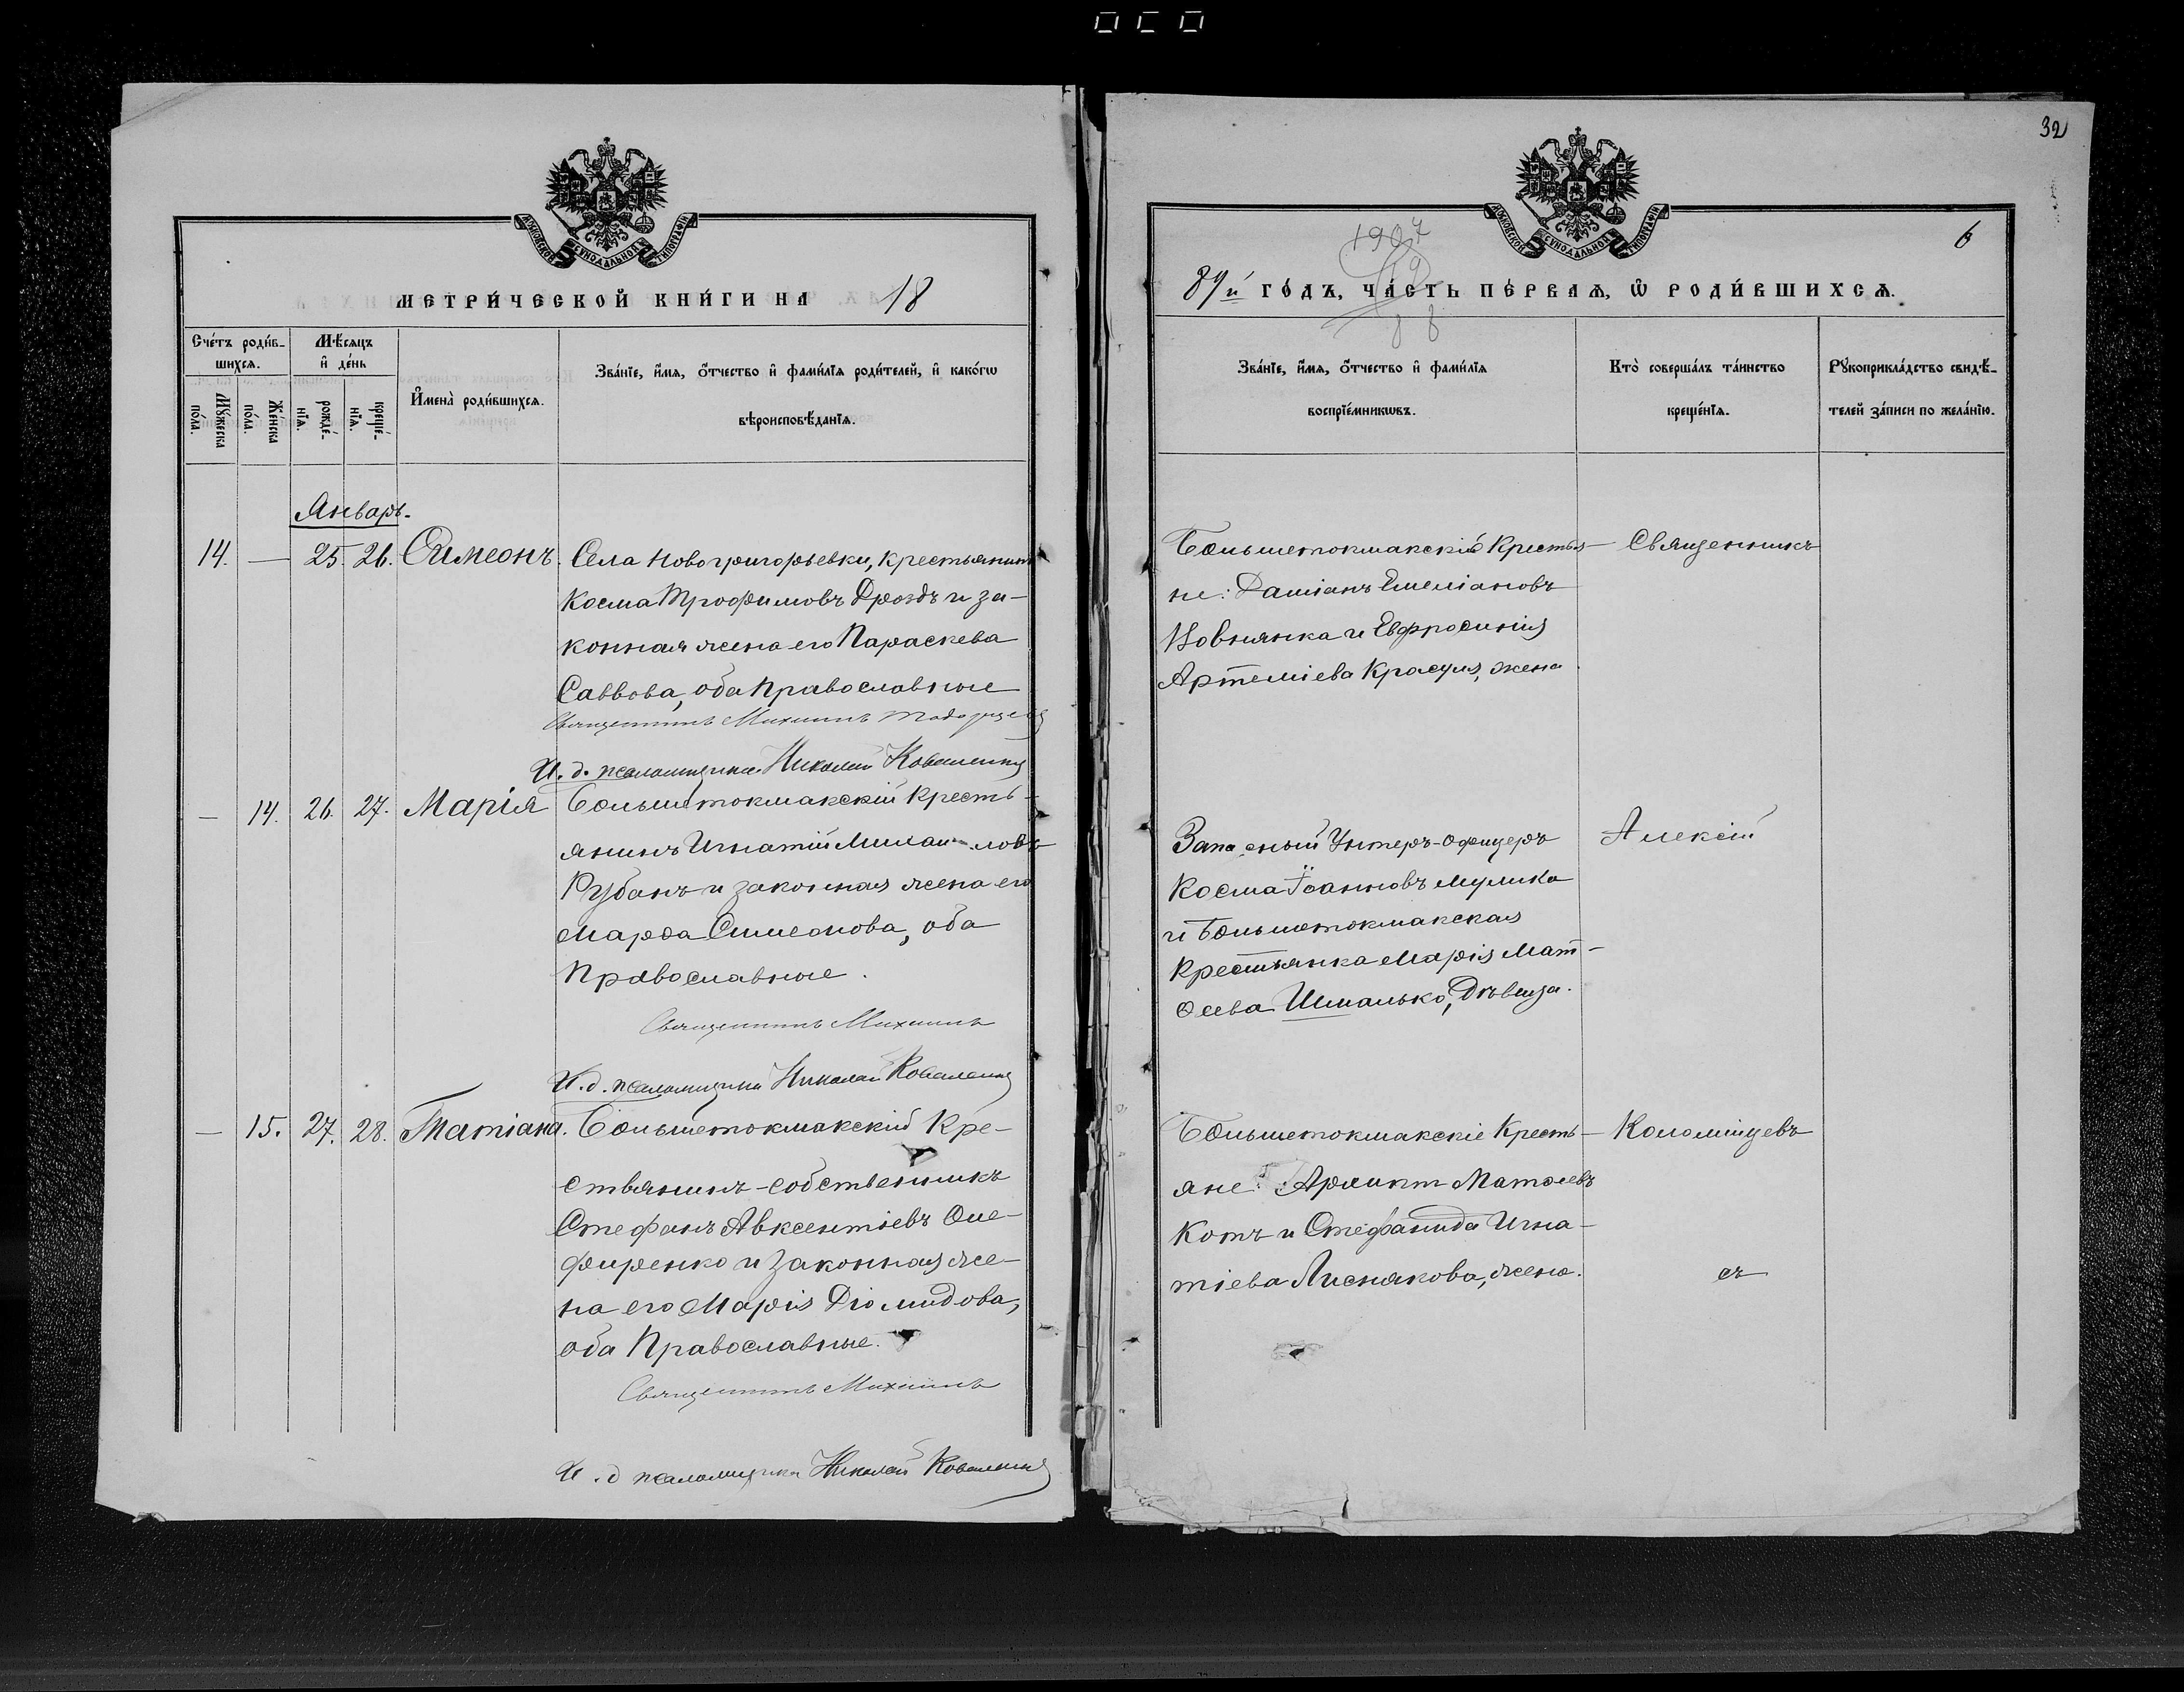 32
МОСКОВСКОЙ СѴНОДАЛЬНОЙ ТИПОГРАФІИ
МЕТРИ́ЧЕСКОЙ КНИ́ГИ НА 18
Сче́тъ роди́в-
шихсѧ.
Мѣ́сѧцъ
и҆ де́нь
Мꙋ́жеска по́ла.
Же́нска по́ла.
рожде́-нїѧ.
креще́-нїѧ.
И҆мена̀ роди́вшихсѧ.
Зва́нїе, и҆́мѧ, ѻ҆́тчество и҆ фами́лїѧ роди́телей, и҆ како́гѡ
вѣроисповѣ́данїѧ.
Январь.
14. — 25. 26. Симеонъ. Села Новогригорьевки, крестьянинъ
Косма Трофимовъ Дроздъ и за-
конная жена его Параскева
Саввова, оба Православные
Священникъ Михаилъ
И. д. псаломщика Николай Коваленко
— 14. 26. 27. Марія Большетокмакскій кресть-
янинъ Игнатій
Рубанъ и законная жена его
Марѳа Симеонова, оба
Православные.
Священникъ Михаилъ
И. д. псаломщика Николай Коваленко
— 15. 27. 28. Татіана. Большетокмакскій Кре-
стьянинъ-собственникъ
Стефанъ Авксентіевъ Оне-
фиренко и законная же-
на его Марія Діомидова,
оба Православные.
Священникъ Михаилъ
И. д псаломщика Николай Коваленко
МОСКОВСКОЙ СѴНОДАЛЬНОЙ ТИПОГРАФІИ
6
1907
89й ГО́ДЪ, ЧА́СТЬ ПЕ́РВАѦ, Ѡ҆ РОДИ́ВШИХСѦ.
Зва́нїе, и҆́мѧ, ѻ҆́тчество и҆ фами́лїѧ
воспрїе́мникѡвъ.
Кто̀ соверша́лъ та́инство
креще́нїѧ.
Рꙋкоприкла́дство свидѣ́-
телей за́писи по жела́нїю.
Большетокмакскіе Крестья-
не: Даміанъ Емеліановъ
Вовнянка и Евфросинія
Артеміева Красуля, жена
Запасный Унтеръ-офицеръ
Косма Іоанновъ Мулика
и Большетокмакская
Крестьянка Марія Мат-
ѳеева Шмалько, Дѣвица.
Большетокмакскіе Кресть-
яне: Матѳеевъ
Котъ и Стефанида Игна-
тіева Лиснякова, жена.
Священникъ
Алексій
Коломійцевъ
съ